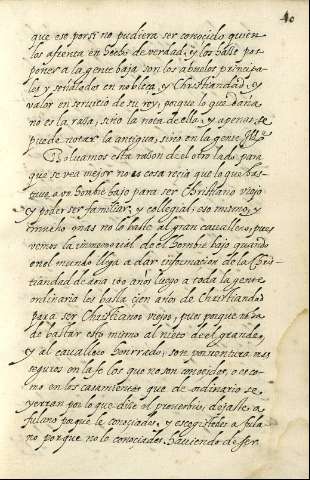 40
que esso por si no pudiera ser conocido quien
los afrenta en hecho de verdad, y los haze pos-
poner a la gente baja son los abuelos principa-
les y señalados en nobleza, y Christiandad, y
valor en servicio de su rey, porque lo que daña
no es la rasa, sino la nota de ella, y apenas se
puede notar la antigua, sino en la gente
Bolvamos esta rason de el otro lado para
que se vea mejor no es cosa recia que lo que bas-
ta a un hombre bajo para ser Christiano viejo
y poder ser familiar, y collegial, eso mismo, y
mucho mas no le baste al gran cavallero, pues
vemos la inmemorial de el hombre bajo quando
en el mundo llega a dar informacion de la Chris-
tiandad de atra 100 años luego a toda la gente
ordinaria les basta cien años de Christiandad
para ser Christianos viejos, pues porque no ha
de bastar esto mismo al nieto de el grande,
y al cavallero honrrado, son por ventura mas
seguros en la fe los que no son conocidos, o es co-
mo en los casamientos que de ordinario se
yerran por lo que dise el proverbio, dejaste a
fulano porque le conociades, y escogisteder a fula
no porque no le conociades haviendo de ser